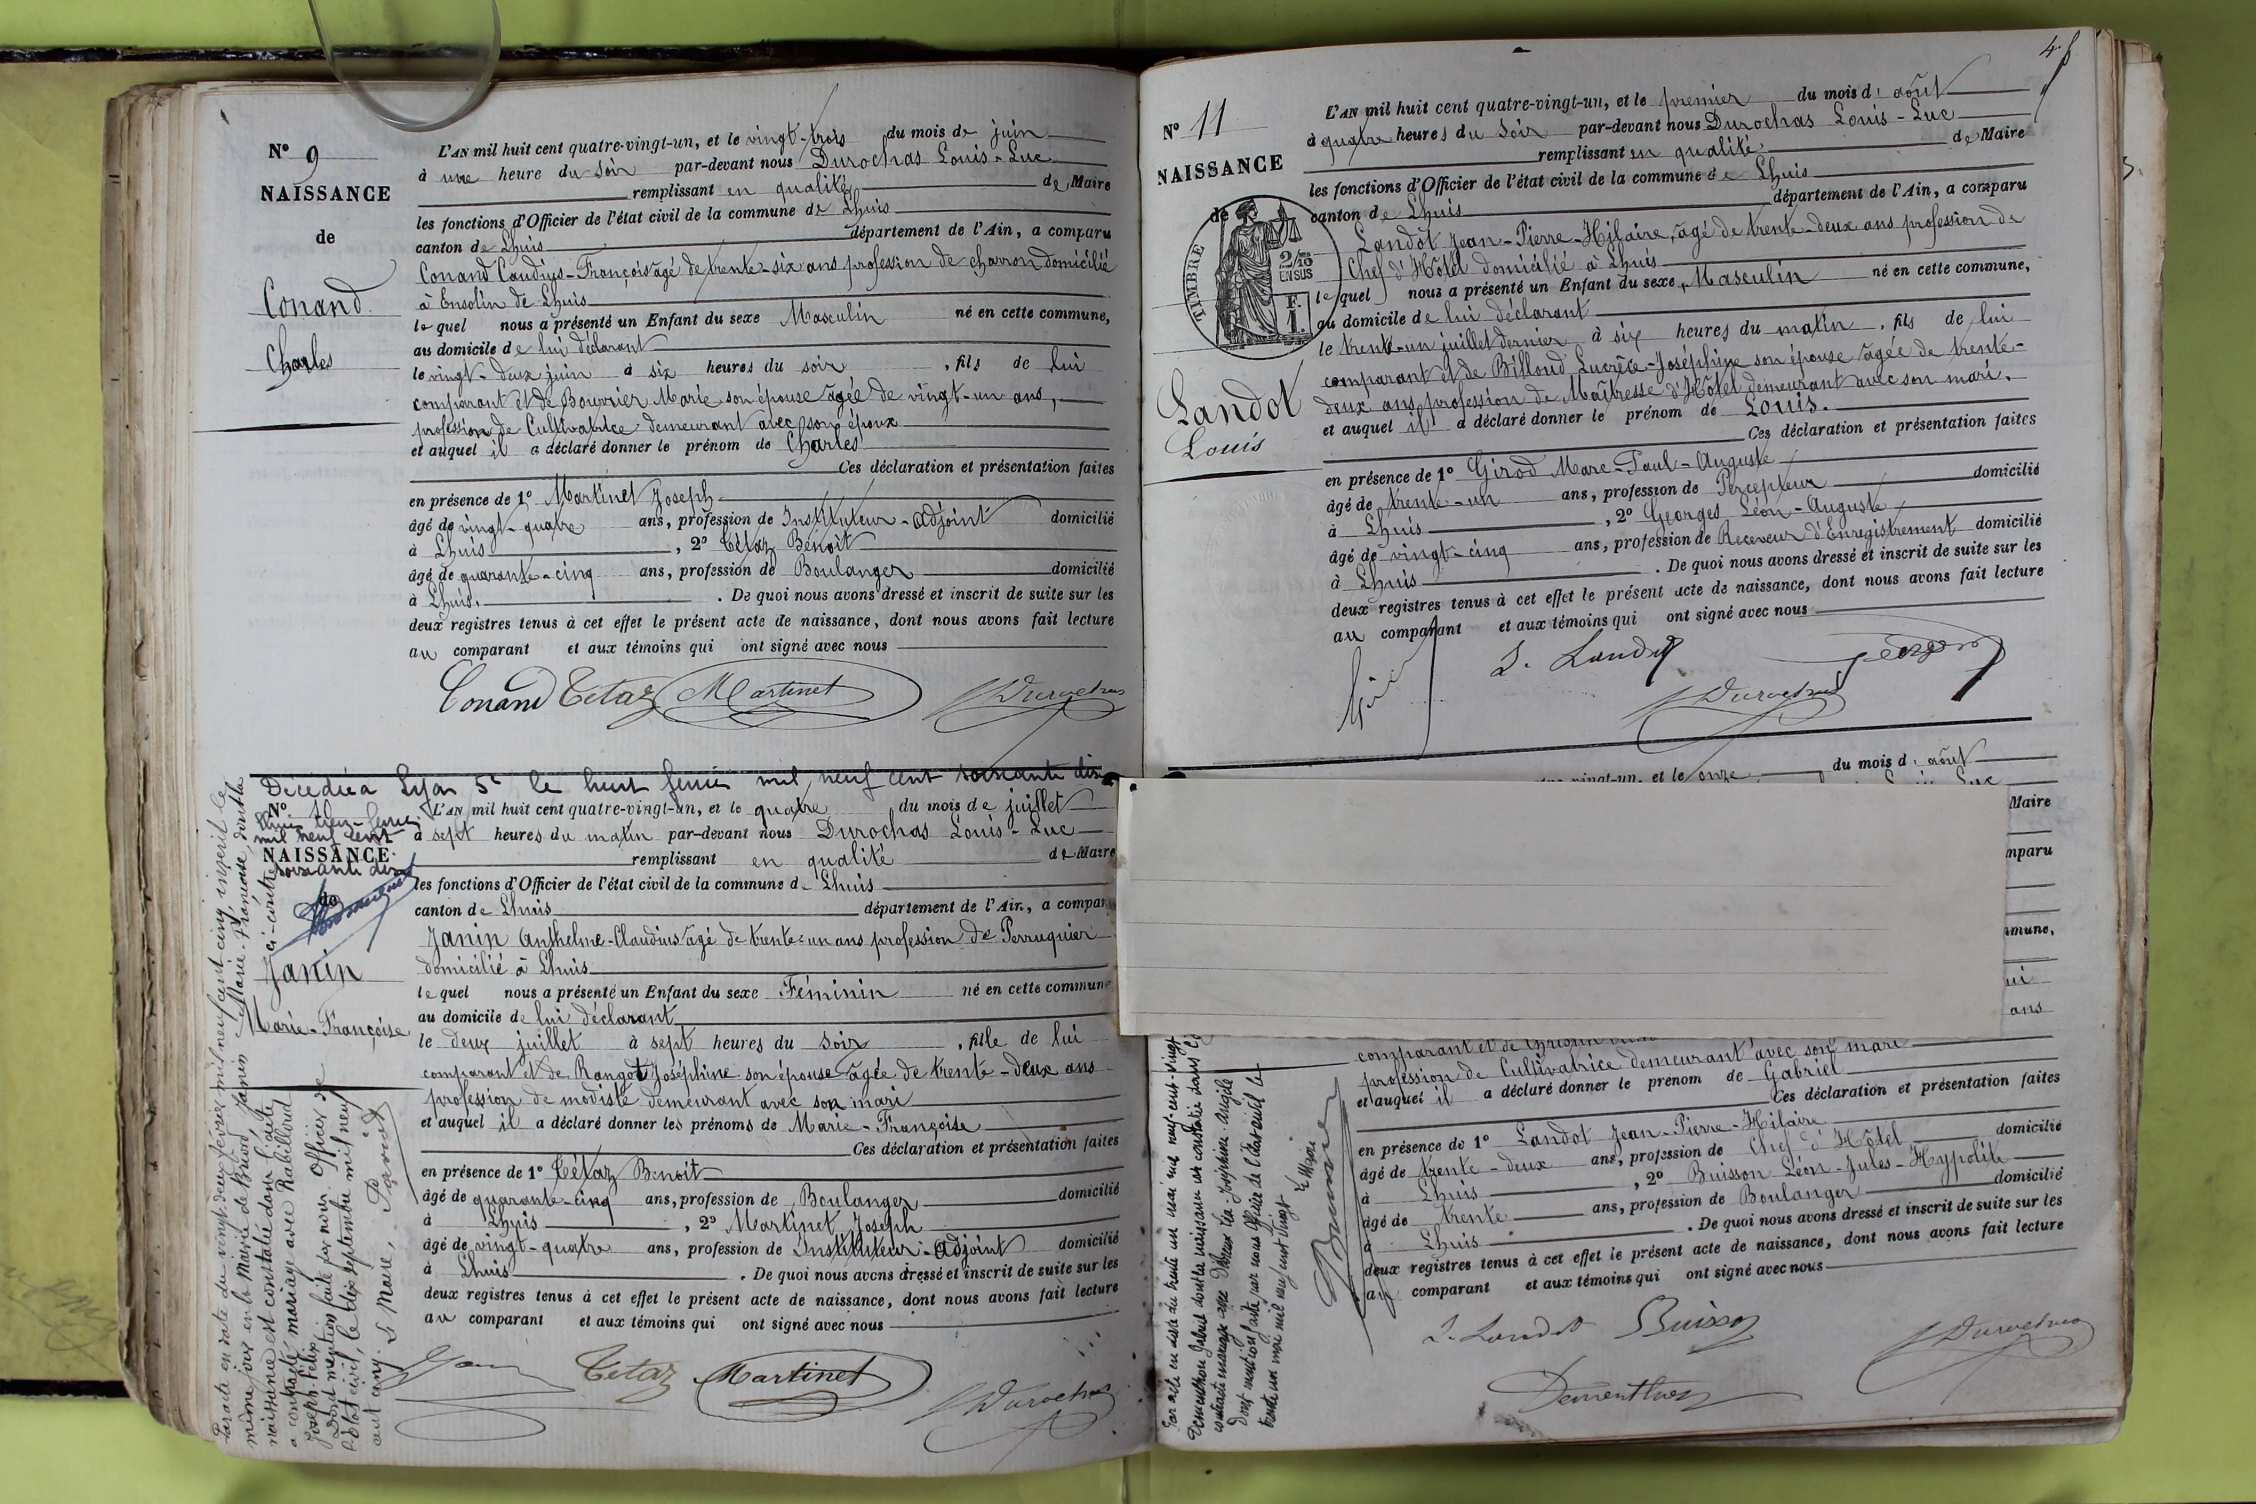 N° 9
NAISSANCE
de
Conand
Charles
L'AN mil huit cent quatre-vingt-un, et le vingt-trois du mois de juin
à une heure du soir par-devant nous Durochas Louis-Luc
remplissant en qualité de Maire
les fonctions d'Officier de l'état civil de la commune de Lhuis
canton de Lhuis département de l'Ain, a comparu
Conand Claudius-François âgé de trente-six ans profession de charron domicilié
à Ensolin de Lhuis
lequel nous a présenté un Enfant du sexe Masculin né en cette commune,
au domicile de lui déclarant
le vingt-deux juin à six heures du soir, fils de lui
comparant et de Bouvrier Marie son épouse âgée de vingt-un ans,
profession de Cultivatrice demeurant avec son époux
et auquel il a déclaré donner le prénom de Charles
Ces déclaration et présentation faites
en présence de 1° Martinet Joseph
âgé de vingt-quatre ans, profession de Instituteur-adjoint domicilié
à Lhuis, 2° Tétaz Benoit
âgé de quarante-cinq ans, profession de Boulanger domicilié
à Lhuis. De quoi nous avons dressé et inscrit de suite sur les
deux registres tenus à cet effet le présent acte de naissance, dont nous avons fait lecture
au comparant et aux témoins qui ont signé avec nous
Conand Tetaz Martinet Durochas
Décédée à Lyon 5e le huit février mil neuf cent soixante dix
N°
mil neuf cent
NAISSANCE
soixante dix
de
Janin
Marie-Françoise
L'AN mil huit cent quatre-vingt-un, et le quatre du mois de juillet
à sept heures du matin par-devant nous Durochas Louis-Luc
remplissant en qualité de Maire
les fonctions d'Officier de l'état civil de la commune d Lhuis
canton de Lhuis département de l'Ain, a compar
Janin Anthelme-Claudius âgé de trente-un ans profession de Perruquier
domicilié à Lhuis
lequel nous a présenté un Enfant du sexe Féminin né en cette commune
au domicile de lui déclarant
le deux juillet à sept heures du soir, fille de lui
comparant et de Rangot Joséphine son épouse âgée de trente-deux ans
profession de modiste demeurant avec son mari
et auquel il a déclaré donner les prénoms de Marie-Françoise
Ces déclaration et présentation faites
en présence de 1° Tétaz Benoit
âgé de quarante-cinq ans, profession de Boulanger domicilié
à Lhuis, 2° Martinet Joseph
âgé de vingt-quatre ans, profession de Instituteur-adjoint domicilié
à Lhuis. De quoi nous avons dressé et inscrit de suite sur les
deux registres tenus à cet effet le présent acte de naissance, dont nous avons fait lecture
au comparant et aux témoins qui ont signé avec nous
Tetaz Martinet Durochas
Par acte en date du vingt-deux février mil neuf cent cinq, inscrit le
même jour en la Mairie de Briord, Janin Marie-Françoise, dont la
naissance est constatée dans l'acte ci-contre
a contracté mariage avec Rabilloud
Joseph-Félix
Dont mention faite par nous, Officier de
l'état civil, le dix septembre mil neuf
cent cinq. Le Maire,
N° 11
NAISSANCE
de
TIMBRE
2/10 EN SUS
F. 1.
Landot
Louis
L'AN mil huit cent quatre-vingt-un, et le premier du mois d'août
à quatre heures du soir par-devant nous Durochas Louis-Luc
remplissant en qualité de Maire
les fonctions d'Officier de l'état civil de la commune de Lhuis
canton de Lhuis département de l'Ain, a comparu
Landot Jean-Pierre-Hilaire, âgé de trente-deux ans profession de
Chef d'Hôtel domicilié à Lhuis
lequel nous a présenté un Enfant du sexe Masculin né en cette commune,
au domicile de lui déclarant
le trente-un juillet dernier à six heures du matin, fils de lui
comparant et de Billoud Lucrèce-Joséphine son épouse âgée de trente-
deux ans, profession de Maîtresse d'Hôtel demeurant avec son mari,
et auquel il a déclaré donner le prénom de Louis.
Ces déclaration et présentation faites
en présence de 1° Girod Marc-Paul-Auguste
âgé de trente-un ans, profession de Percepteur domicilié
à Lhuis, 2° Georges Léon-Auguste
âgé de vingt-cinq ans, profession de Receveur d'Enregistrement domicilié
à Lhuis. De quoi nous avons dressé et inscrit de suite sur les
deux registres tenus à cet effet le présent acte de naissance, dont nous avons fait lecture
au comparant et aux témoins qui ont signé avec nous
Landot Georges
Durochas
vingt-un, et le onze du mois d'août
Maire
mparu
mmune,
ui
ans
profession de Cultivatrice demeurant avec son mari
et auquel il a déclaré donner le prénom de Gabriel
Ces déclaration et présentation faites
en présence de 1° Landot Jean-Pierre-Hilaire
âgé de trente-deux ans, profession de Chef d'Hôtel domicilié
à Lhuis, 2° Buisson Léon-Jules-Hypolite
âgé de trente ans, profession de Boulanger domicilié
à Lhuis. De quoi nous avons dressé et inscrit de suite sur les
deux registres tenus à cet effet le présent acte de naissance, dont nous avons fait lecture
au comparant et aux témoins qui ont signé avec nous
Landot Buisson Durochas
Dementhon
dont mention faite par nous officier de l'état civil le
trente un mai mil neuf cent vingt
Le Maire